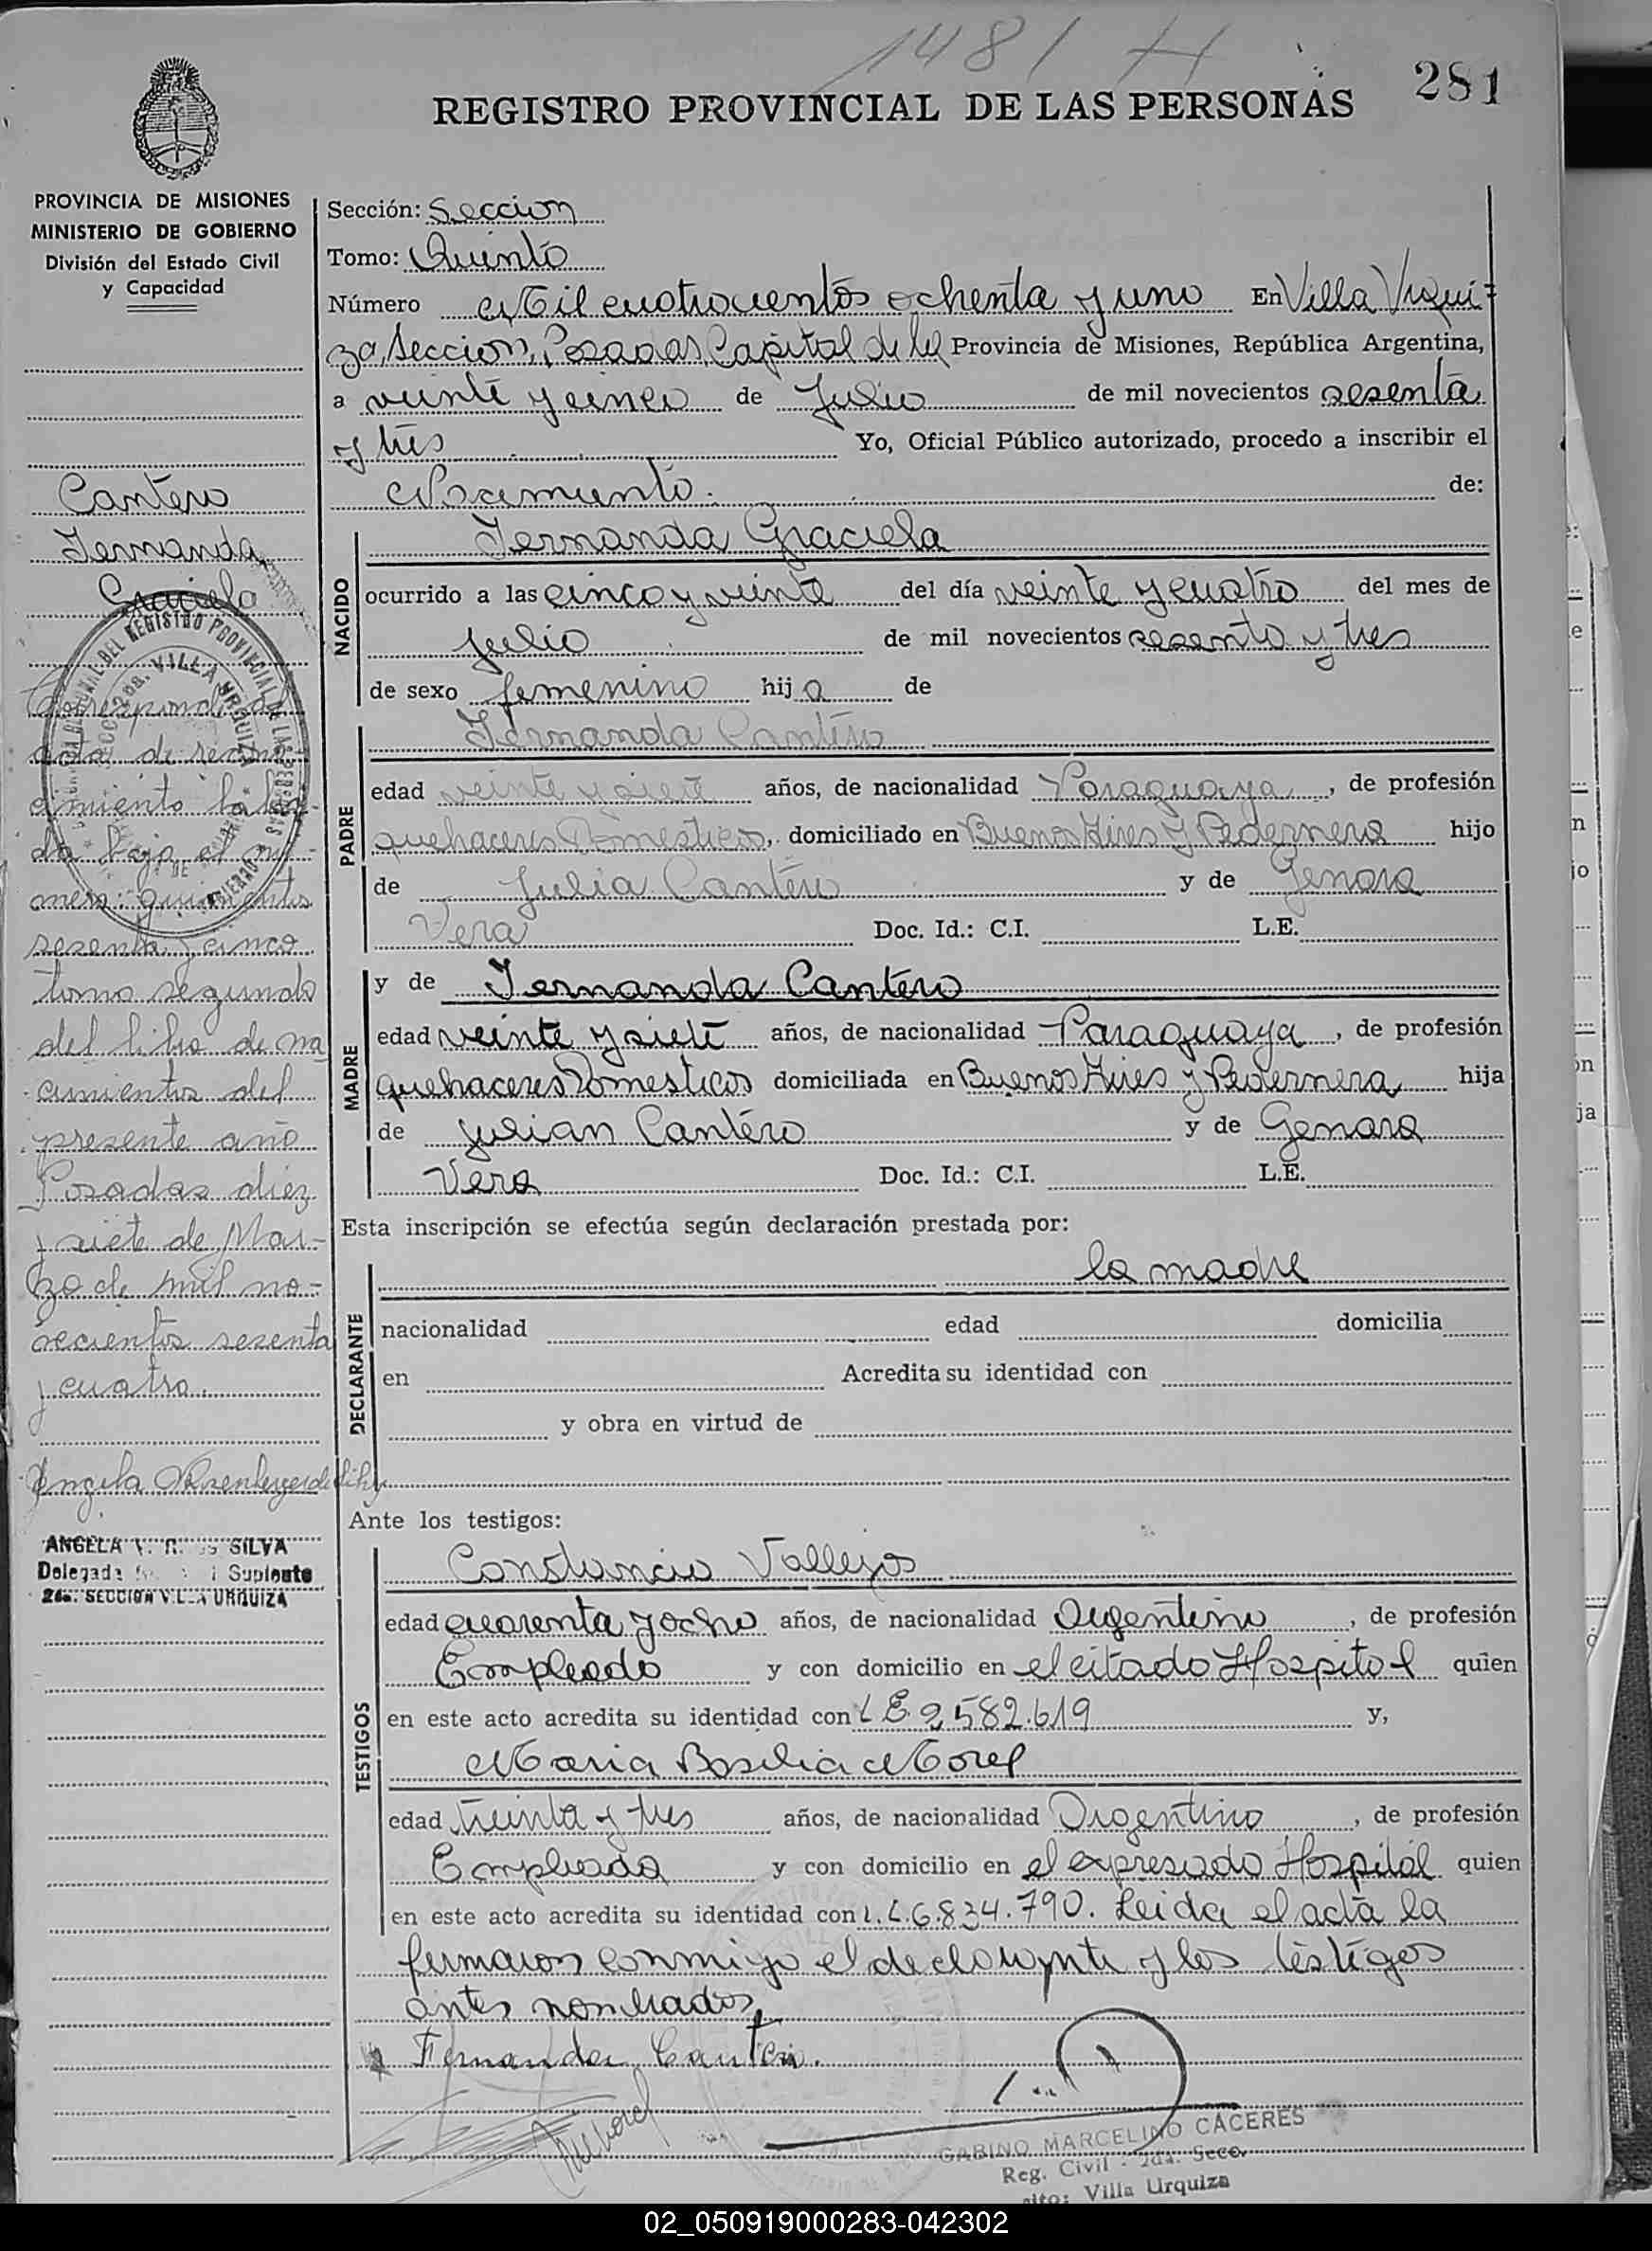 1481 H
281
REGISTRO PROVINCIAL DE LAS PERSONAS
PROVINCIA DE MISIONES
MINISTERIO DE GOBIERNO
División del Estado Civil
y Capacidad
Cantero
Fernanda
Graciela
Corresponde
acta de recono
cimiento labra-
da bajo el nú-
mero: quinientos
sesenta y cinco
tomo segundo
del libro de na
cimientos del
presente año
Posadas diez
y siete de Mar-
zo de mil no-
vecientos sesenta
y cuatro.
Angela
ANGELA SILVA
Delegada Suplente
2da. SECCION VILLA URQUIZA
Sección: Seccion
Tomo: Quinto
Número Mil cuatrocientos ochenta y uno En Villa Urqui-
za, Seccion, Posadas, Capital de la Provincia de Misiones, República Argentina,
a veinte y cinco de Julio de mil novecientos sesenta
y tres Yo, Oficial Público autorizado, procedo a inscribir el
Nacimiento. de:
NACIDO
Fernanda Graciela
ocurrido a las cinco y veinte del día veinte y cuatro del mes de
julio de mil novecientos sesenta y tres
de sexo femenino hija de
PADRE
Fernanda Cantero
edad veinte y siete años, de nacionalidad Paraguaya, de profesión
quehaceres Domesticos, domiciliado en Buenos Aires y Pedernera hijo
de Julia Cantero y de Genara
Vera Doc. Id.: C.I. L.E.
MADRE
y de Fernanda Cantero
edad veinte y siete años, de nacionalidad Paraguaya, de profesión
quehaceres Domesticos domiciliada en Buenos Aires y Pedernera hija
de Julian Cantero y de Genara
Vera Doc. Id.: C.I. L.E.
Esta inscripción se efectúa según declaración prestada por:
DECLARANTE
la madre
nacionalidad edad domicilia
en Acredita su identidad con
y obra en virtud de
Ante los testigos:
TESTIGOS
Constancio Vallejos
edad cuarenta y ocho años, de nacionalidad Argentino, de profesión
Empleado y con domicilio en el citado Hospital quien
en este acto acredita su identidad con L E 2,582.619 y,
Maria Basilia Morel
edad treinta y tres años, de nacionalidad Argentino, de profesión
Empleada y con domicilio en el expresado Hospital quien
en este acto acredita su identidad con L.C.6.834.790. Leida el acta la
firmaron conmigo el declarante y los testigos
antes nombrados,
Fernanda Cantero.
GABINO MARCELINO CACERES
Reg. Civil - 2da. Secc.
Villa Urquiza
02_050919000283-042302